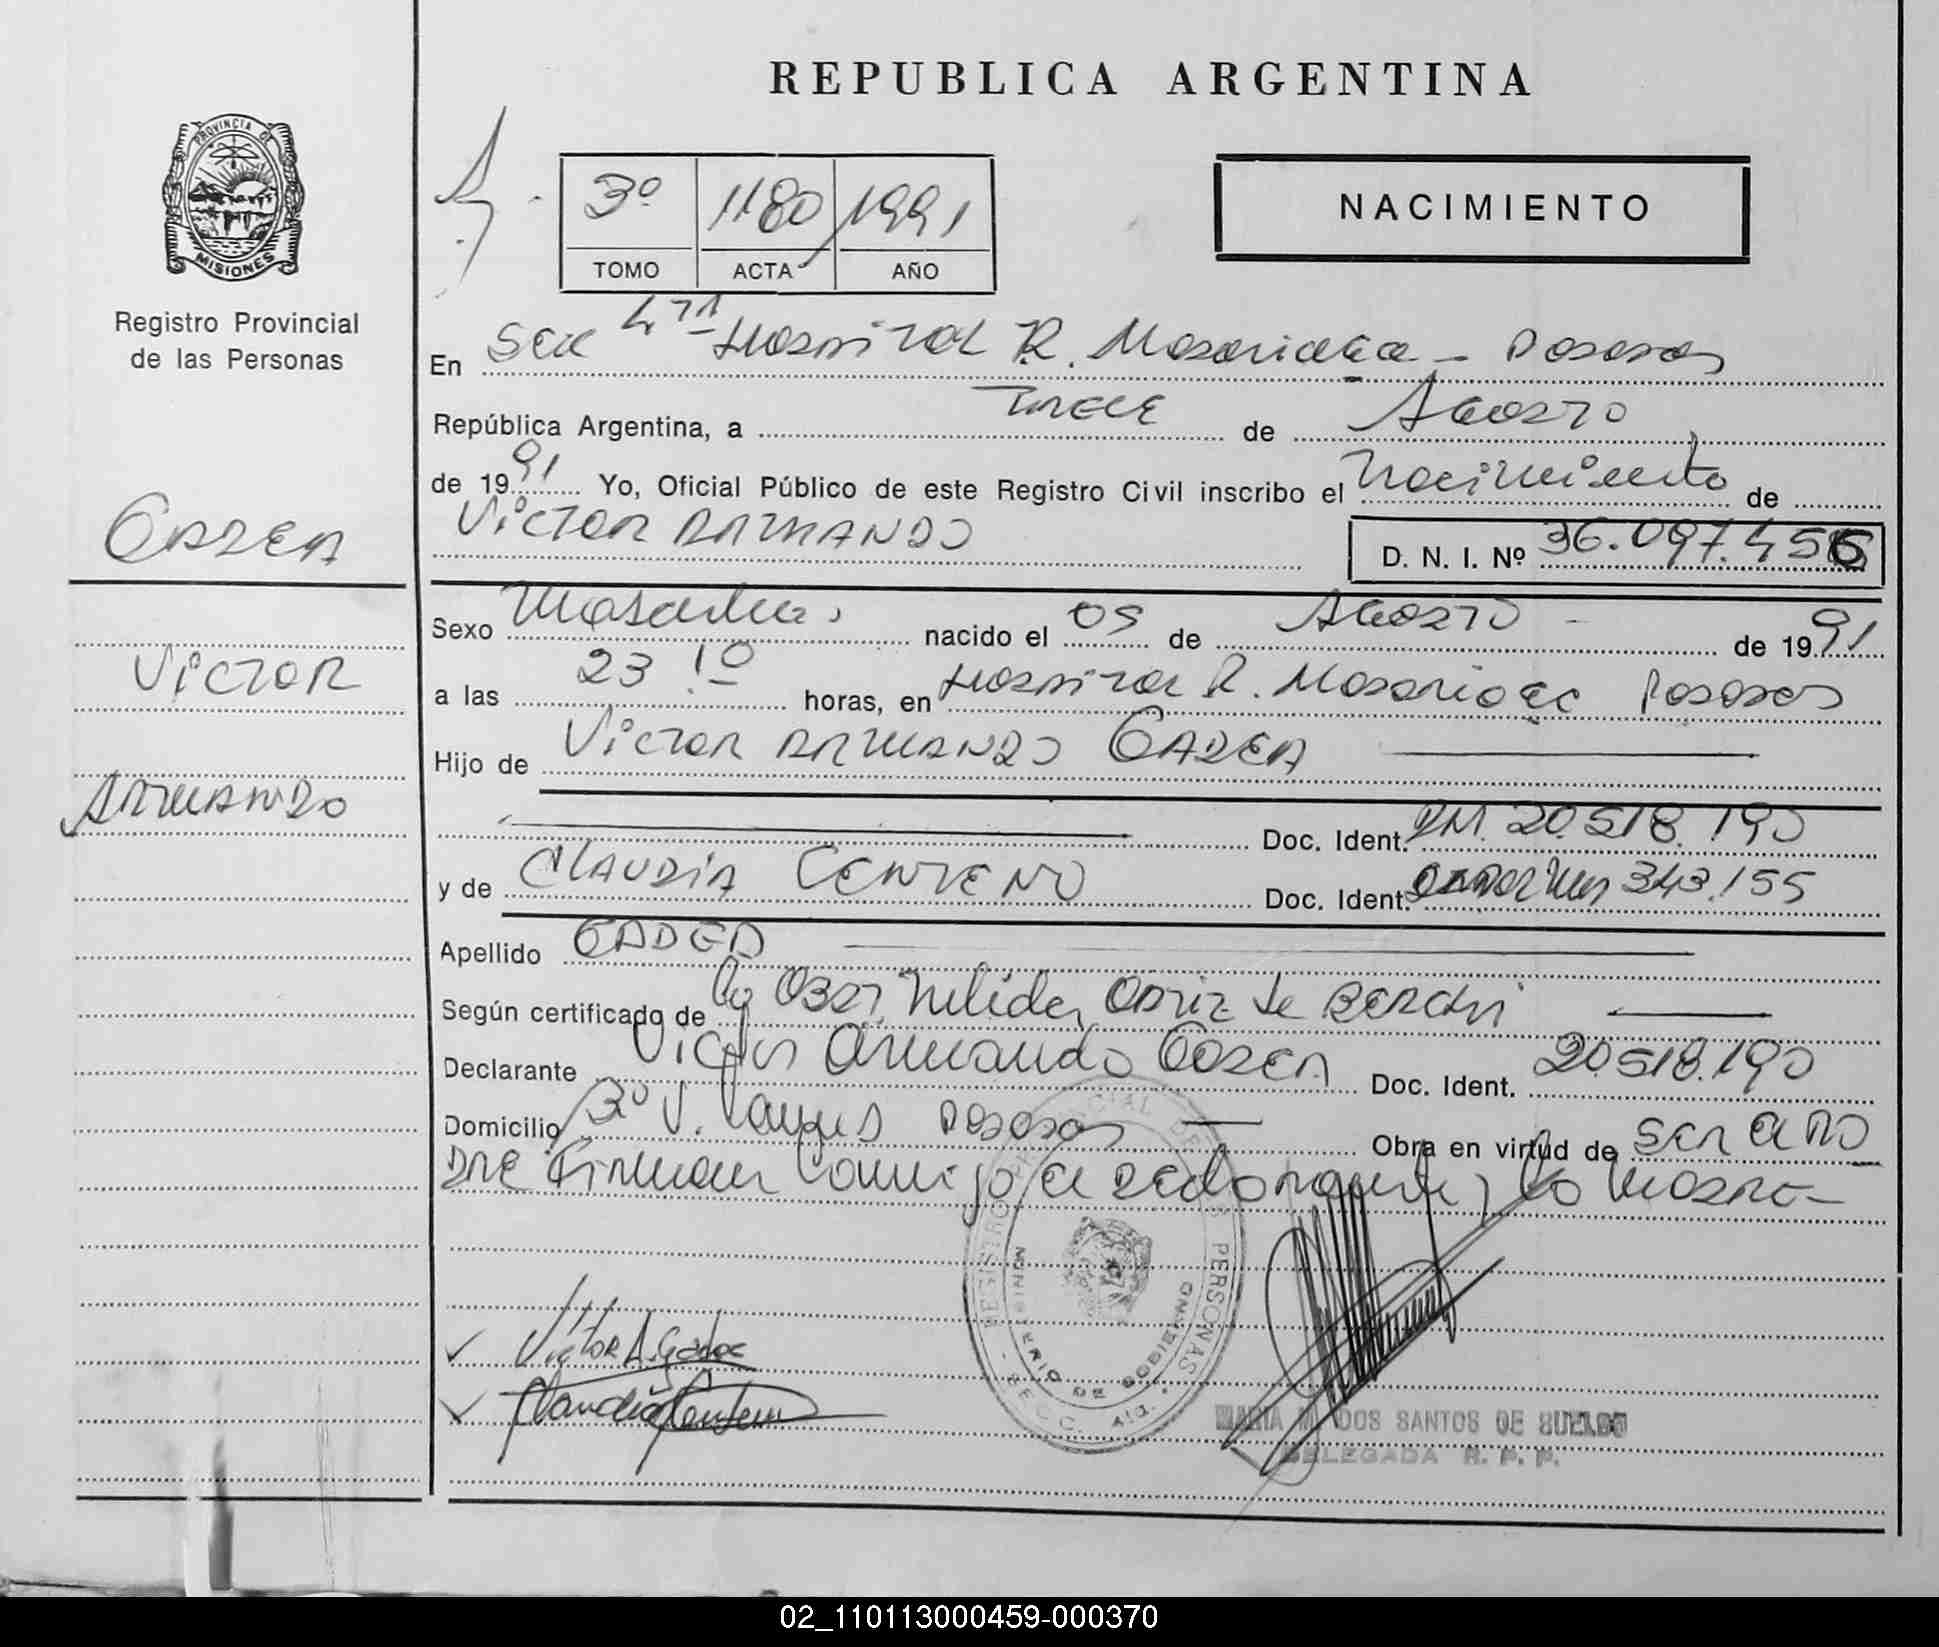 REPUBLICA ARGENTINA
PROVINCIA DE
MISIONES
Registro Provincial
de las Personas
3º 1180 1991
TOMO ACTA AÑO
NACIMIENTO
En Sec 4ta Hospital R. Madariaga - Posadas
República Argentina, a Trece de Agosto
de 1991 Yo, Oficial Público de este Registro Civil inscribo el Nacimiento de
VICTOR ARMANDO
D. N. I. Nº 36.097.456
GADEA
VICTOR
ARMANDO
Sexo Masculino nacido el 09 de Agosto - de 1991
a las 23 10 horas, en Hospital R. Madariaga Posadas
Hijo de VICTOR ARMANDO GADEA
Doc. Ident. DNI. 20.518.190
y de CLAUDIA CENTENO Doc. Ident. 343.155
Apellido GADEA
Según certificado de la Obst. Nelida de
Declarante Victor Armando GADEA Doc. Ident. 20.518.190
Domicilio Bº V. Posadas Obra en virtud de SER EL PA
DRE Firman conmigo el declarante y la Madre-
Victor A. Gadea
Claudia Centeno
REGISTRO PROVINCIAL DE LAS PERSONAS
MINISTERIO DE GOBIERNO
MARIA M. DOS SANTOS DE
DELEGADA R. P. P.
02_110113000459-000370